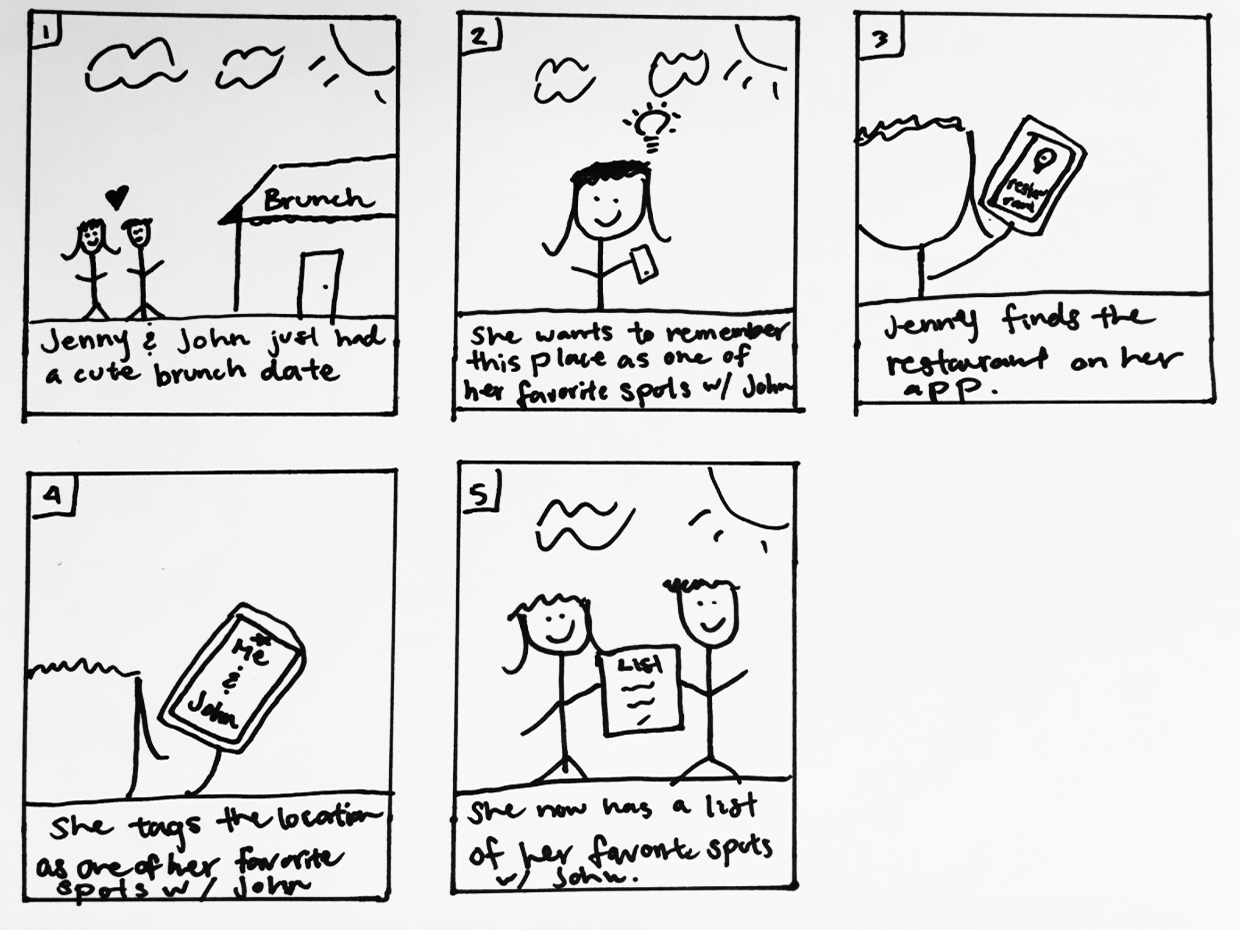 1
Brunch
Jenny & John just had
a cute brunch date
2
She wants to remember
this place as one of
her favorite spots w/ John
3
restau
rant
Jenny finds the
restaurant on her
app.
4
Me
&
John
She tags the location
as one of her favorite
spots w/ John
5
LIST
She now has a list
of her favorite spots
w/ John.